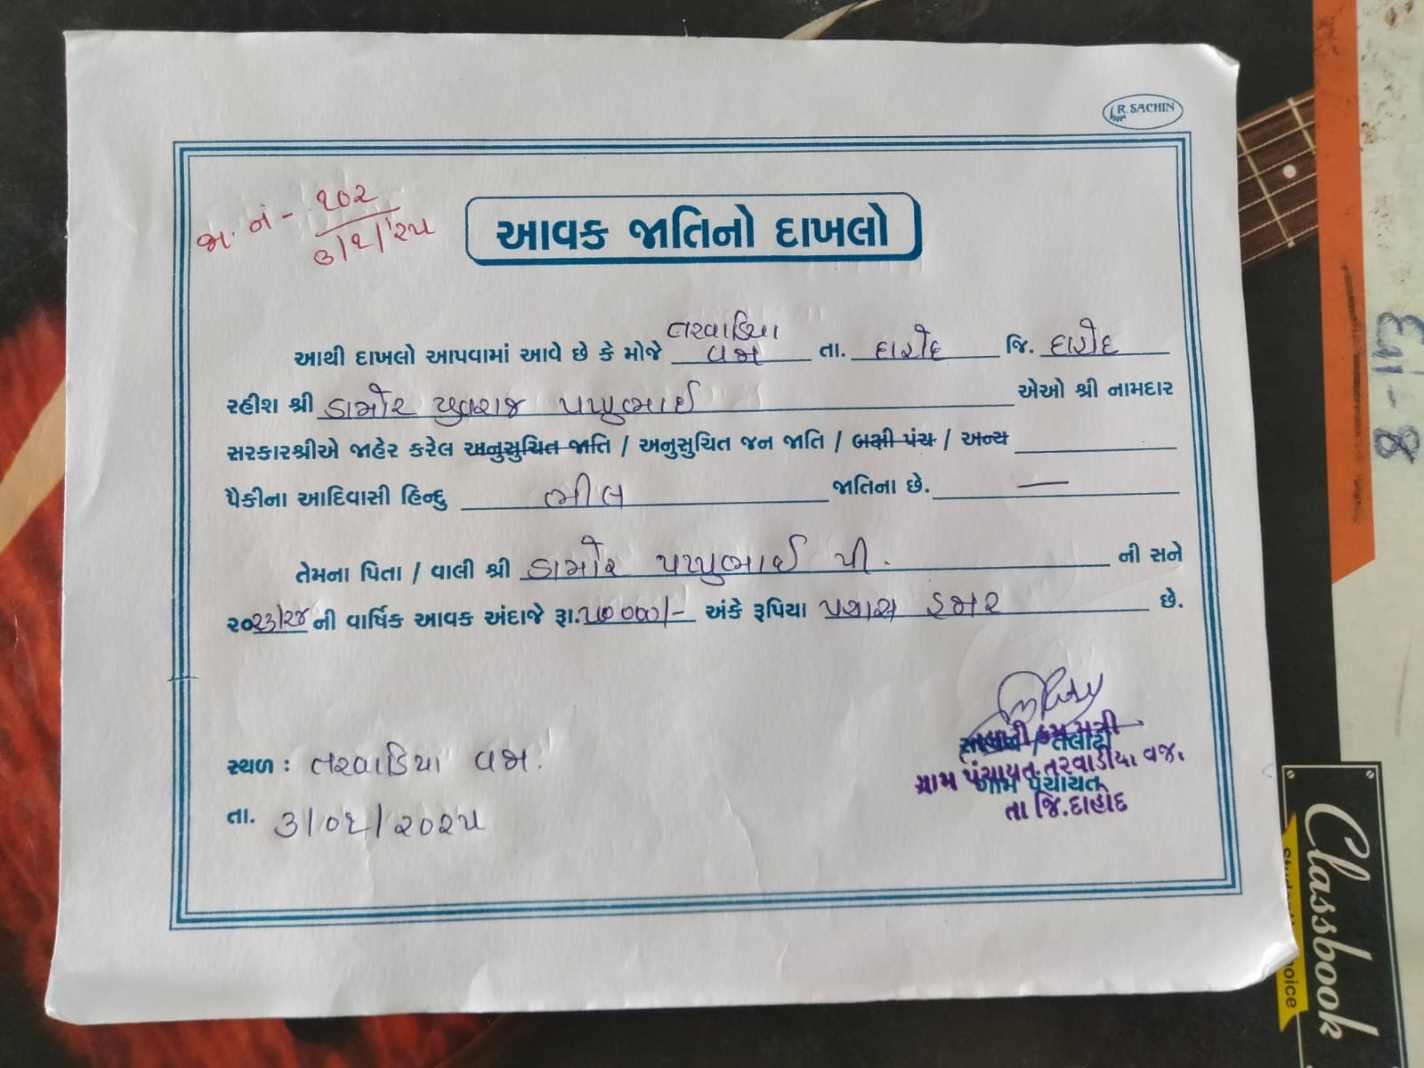 R. SACHIN
જા. નં - ૧૦૨
૩/૬/૨૫
આવક જાતિનો દાખલો
તરવાડિયા
આથી દાખલો આપવામાં આવે છે કે મોજે વજા તા. દાહોદ જિ. દાહોદ
રહીશ શ્રી ડામોર યુવરાજ પપ્પુભાઈ એઓ શ્રી નામદાર
સરકારશ્રીએ જાહેર કરેલ અનુસુચિત જાતિ / અનુસુચિત જન જાતિ / બક્ષી પંચ / અન્ય
પૈકીના આદિવાસી હિન્દુ ભીલ જાતિના છે. —
તેમના પિતા / વાલી શ્રી ડામોર પપ્પુભાઈ પી. ની સને
૨૦૨૩/૨૪ ની વાર્ષિક આવક અંદાજે રૂા. ૫૦૦૦૦/- અંકે રૂપિયા પચાસ હજાર છે.
તલાટી કમ મંત્રી
સરપંચ / તલાટી
ગ્રામ પંચાયત તરવાડીયા વજા.
ગ્રામ પંચાયત
તા જિ.દાહોદ
સ્થળ : તરવાડિયા વજા.
તા. ૩/૦૬/૨૦૨૫
Classbook